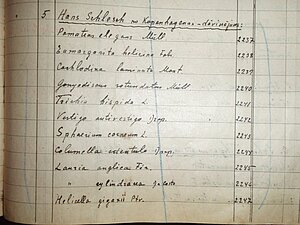 5 Hans Schlesch no Kopenhagenas - dāvinājums:
Pomatias elegans Müll 2237
Eumargarita helicina Fab. 2238
Cochlodina laminata Mont 2239
Gonyodiscus rotundatus Müll 2240
Trichia hispida L. 2241
Vertigo antivertigo Drap. 2242
Sphaerium corneum L. 2243
Columella edentula Drap. 2244
Lauria anglica Fér. 2245
" cylindracea Da Costa 2246
Helicella gigaxii Pfr. 2247